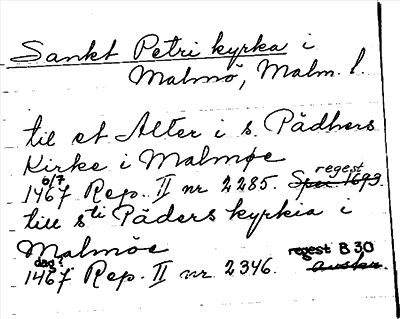 Sankt Petri kyrka i
Malmö, Malm. l.
til et Alter i s. Pädhers
Kirke i Malmøe
6/7
regest
1467 Rep. II nr 2285. Spec 1693
till sti Päders kyrkia i
Malmöe
dag?
regest B 30
1467 Rep. II nr 2346.